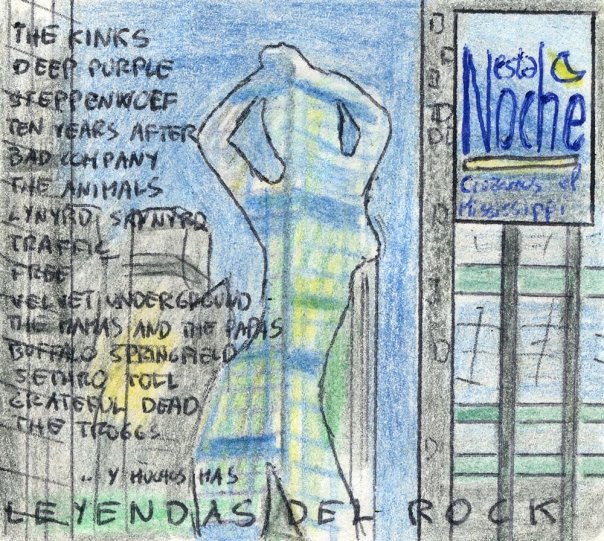 THE KINKS
DEEP PURPLE
STEPPENWOLF
TEN YEARS AFTER
BAD COMPANY
THE ANIMALS
LYNYRD SKYNYRD
TRAFFIC
FREE
VELVET UNDERGROUND
THE MAMAS AND THE PAPAS
BUFFALO SPRINGFIELD
JETHRO TULL
GRATEFUL DEAD
THE TROGGS
.. Y MUCHOS MAS
LEYENDAS DEL ROCK
esta
Noche
Cruzamos el
Mississippi